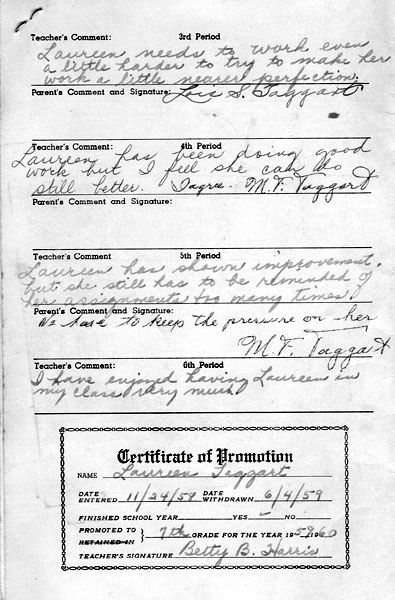 Teacher's Comment: 3rd Period
Laureen needs to work even
a little harder to try to make her
work a little nearer perfection.
Parent's Comment and Signature: Lois S. Taggart
Teacher's Comment: 4th Period
Laureen has been doing good
work but I feel she can do
still better. I agree. M. F. Taggart
Parent's Comment and Signature:
Teacher's Comment 5th Period
Laureen has shown improvement.
but she still has to be reminded of
her assignments too many times.
Parent's Comment and Signature:
We have to keep the pressure on her
M. F. Taggart
Teacher's Comment: 6th Period
I have enjoyed having Laureen in
my class very much
Certificate of Promotion
NAME Laureen Taggart
DATE ENTERED 11/24/58 DATE WITHDRAWN 6/4/59
FINISHED SCHOOL YEAR YES NO
PROMOTED TO
RETAINED IN
7th GRADE FOR THE YEAR 1959-1960
TEACHER'S SIGNATURE Betty B. Harris